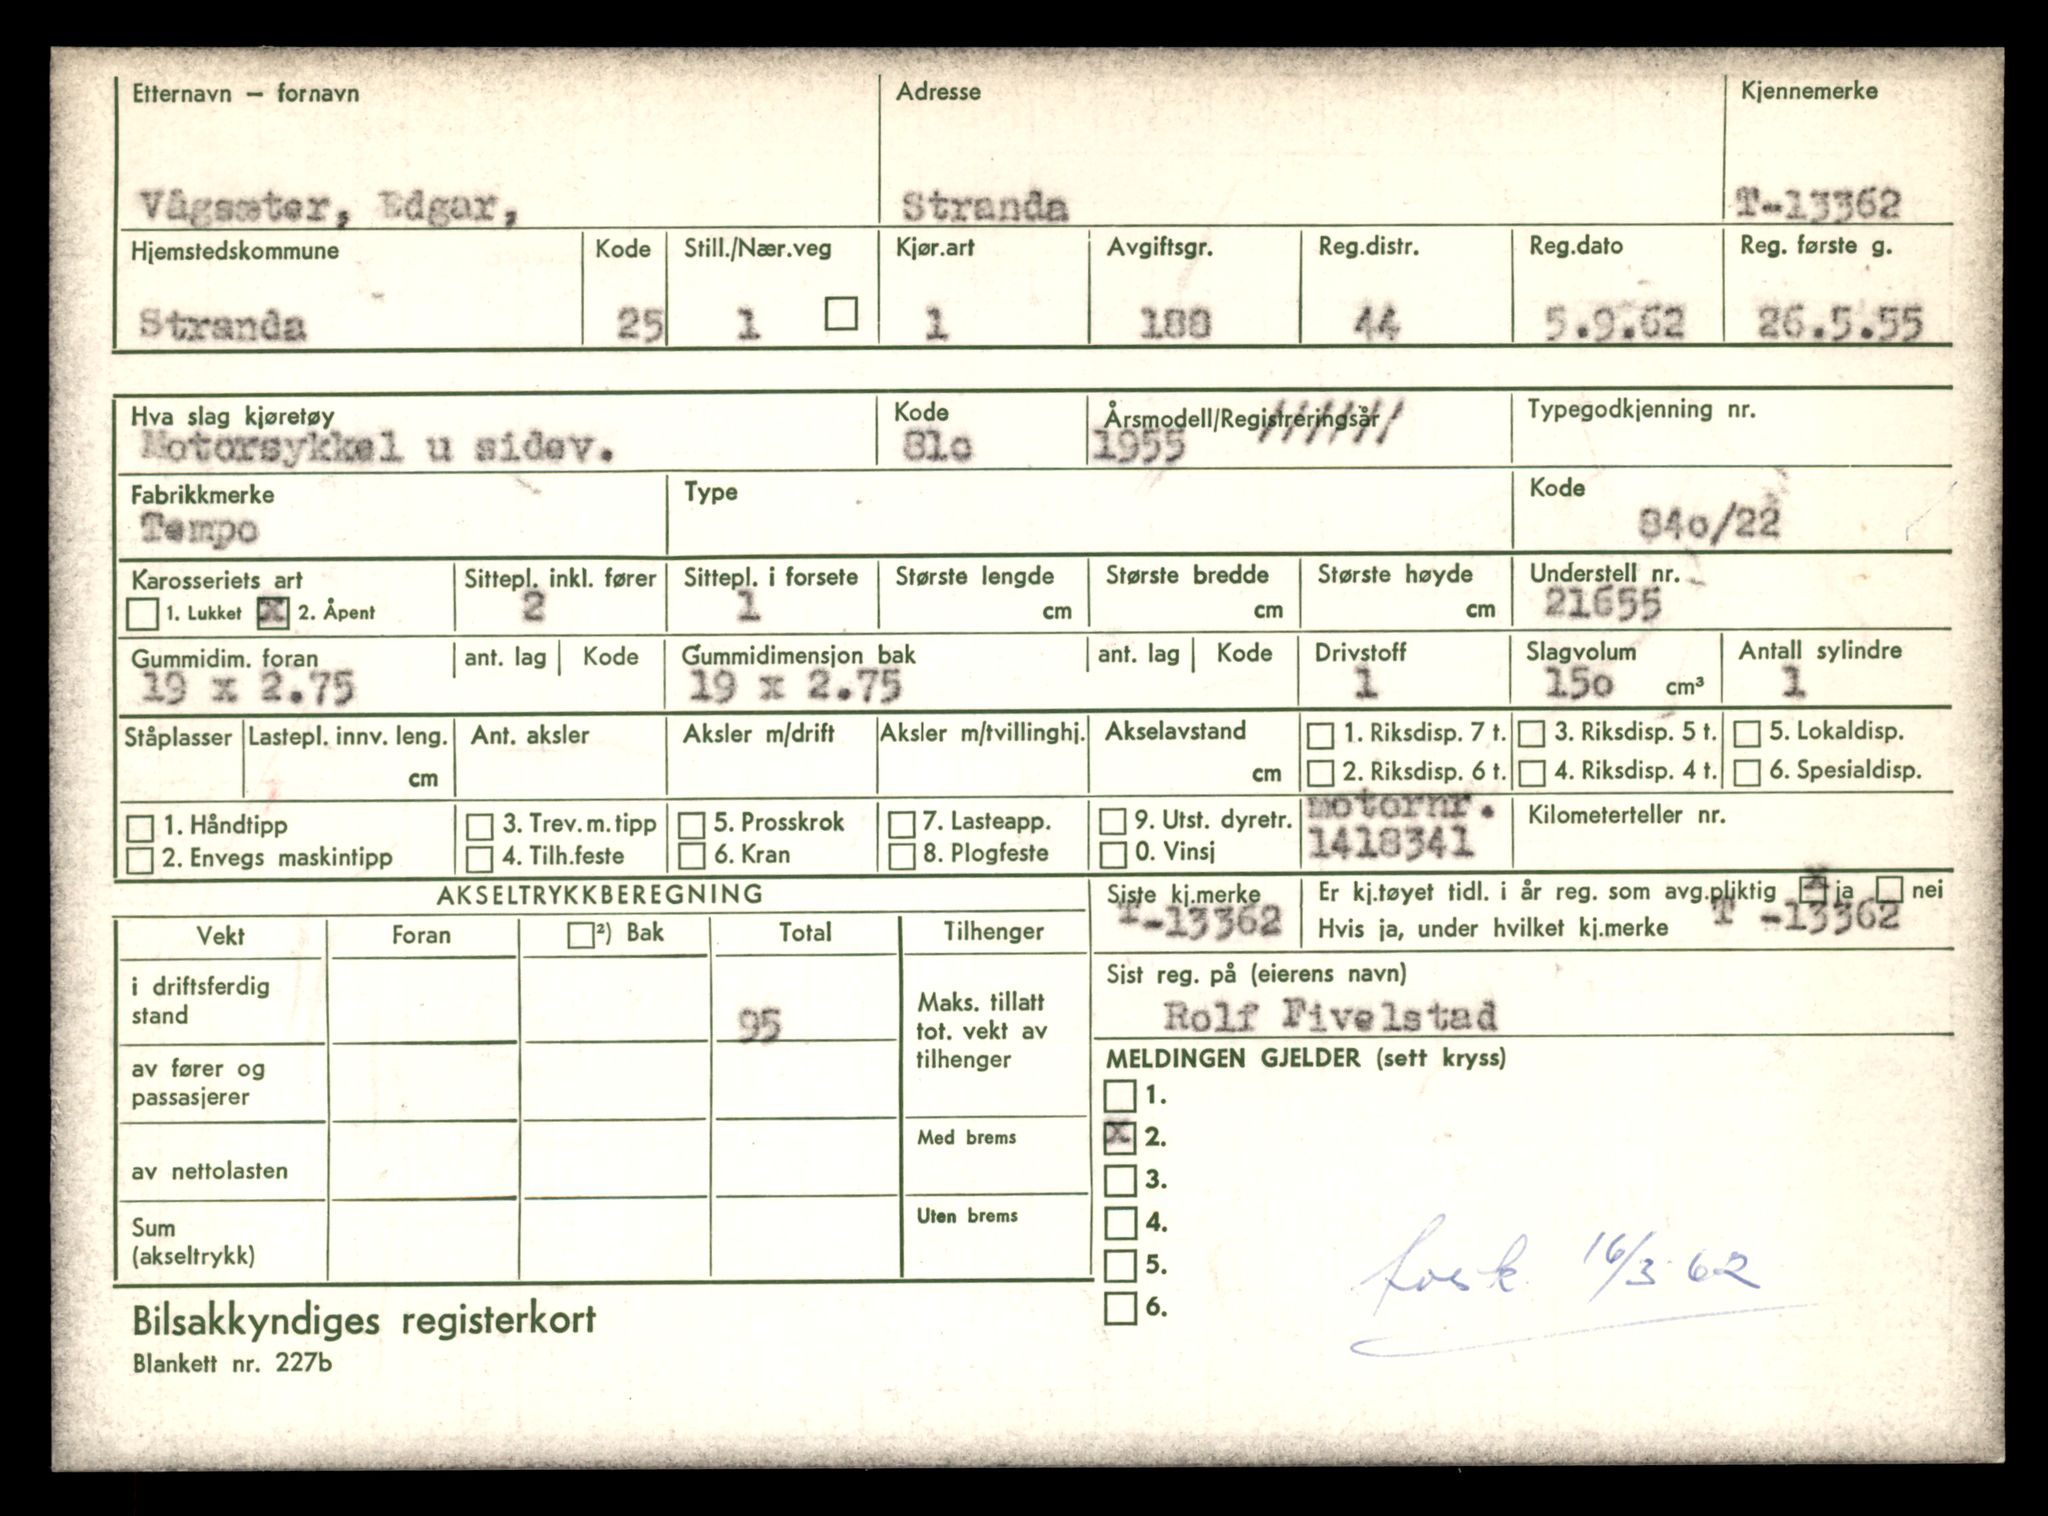 Etternavn – fornavn Adresse Kjennemerke
Vågsæter, Edgar, Stranda T-13362
Hjemstedskommune Kode Still./Nær.veg Kjør.art Avgiftsgr. Reg.distr. Reg.dato Reg. første g.
Stranda 25 1 1 188 44 5.9.62 26.5.55
Hva slag kjøretøy Kode Årsmodell/Registreringsår Typegodkjenning nr.
Motorsykkel u sidev. 81o 1955 //////
Fabrikkmerke Type Kode
Tempo 84o/22
Karosseriets art Sittepl. inkl. fører Sittepl. i forsete Største lengde Største bredde Største høyde Understell nr.
1. Lukket x 2. Åpent 2 1 cm cm cm 21655
Gummidim. foran ant. lag Kode Gummidimensjon bak ant. lag Kode Drivstoff Slagvolum Antall sylindre
19 x 2.75 19 x 2.75 1 15o cm³ 1
Ståplasser Lastepl. innv. leng. Ant. aksler Aksler m/drift Aksler m/tvillinghj. Akselavstand 1. Riksdisp. 7 t. 3. Riksdisp. 5 t. 5. Lokaldisp.
cm cm 2. Riksdisp. 6 t. 4. Riksdisp. 4 t. 6. Spesialdisp.
1. Håndtipp 3. Trev.m.tipp 5. Prosskrok 7. Lasteapp. 9. Utst. dyretr. motornr. Kilometerteller nr.
2. Envegs maskintipp 4. Tilh.feste 6. Kran 8. Plogfeste 0. Vinsj 1418341
AKSELTRYKKBEREGNING Siste kj.merke Er kj.tøyet tidl. i år reg. som avg.pliktig x ja nei
T-13362 Hvis ja, under hvilket kj.merke T -13362
Vekt Foran ²) Bak Total Tilhenger
Sist reg. på (eierens navn)
Rolf Fivelstad
i driftsferdig
stand 95
Maks. tillatt
tot. vekt av
tilhenger
MELDINGEN GJELDER (sett kryss)
av fører og
passasjerer
1.
Med brems x 2.
av nettolasten 3.
Uten brems 4.
Sum
(akseltrykk) 5.
16/3 62
6.
Bilsakkyndiges registerkort
Blankett nr. 227b